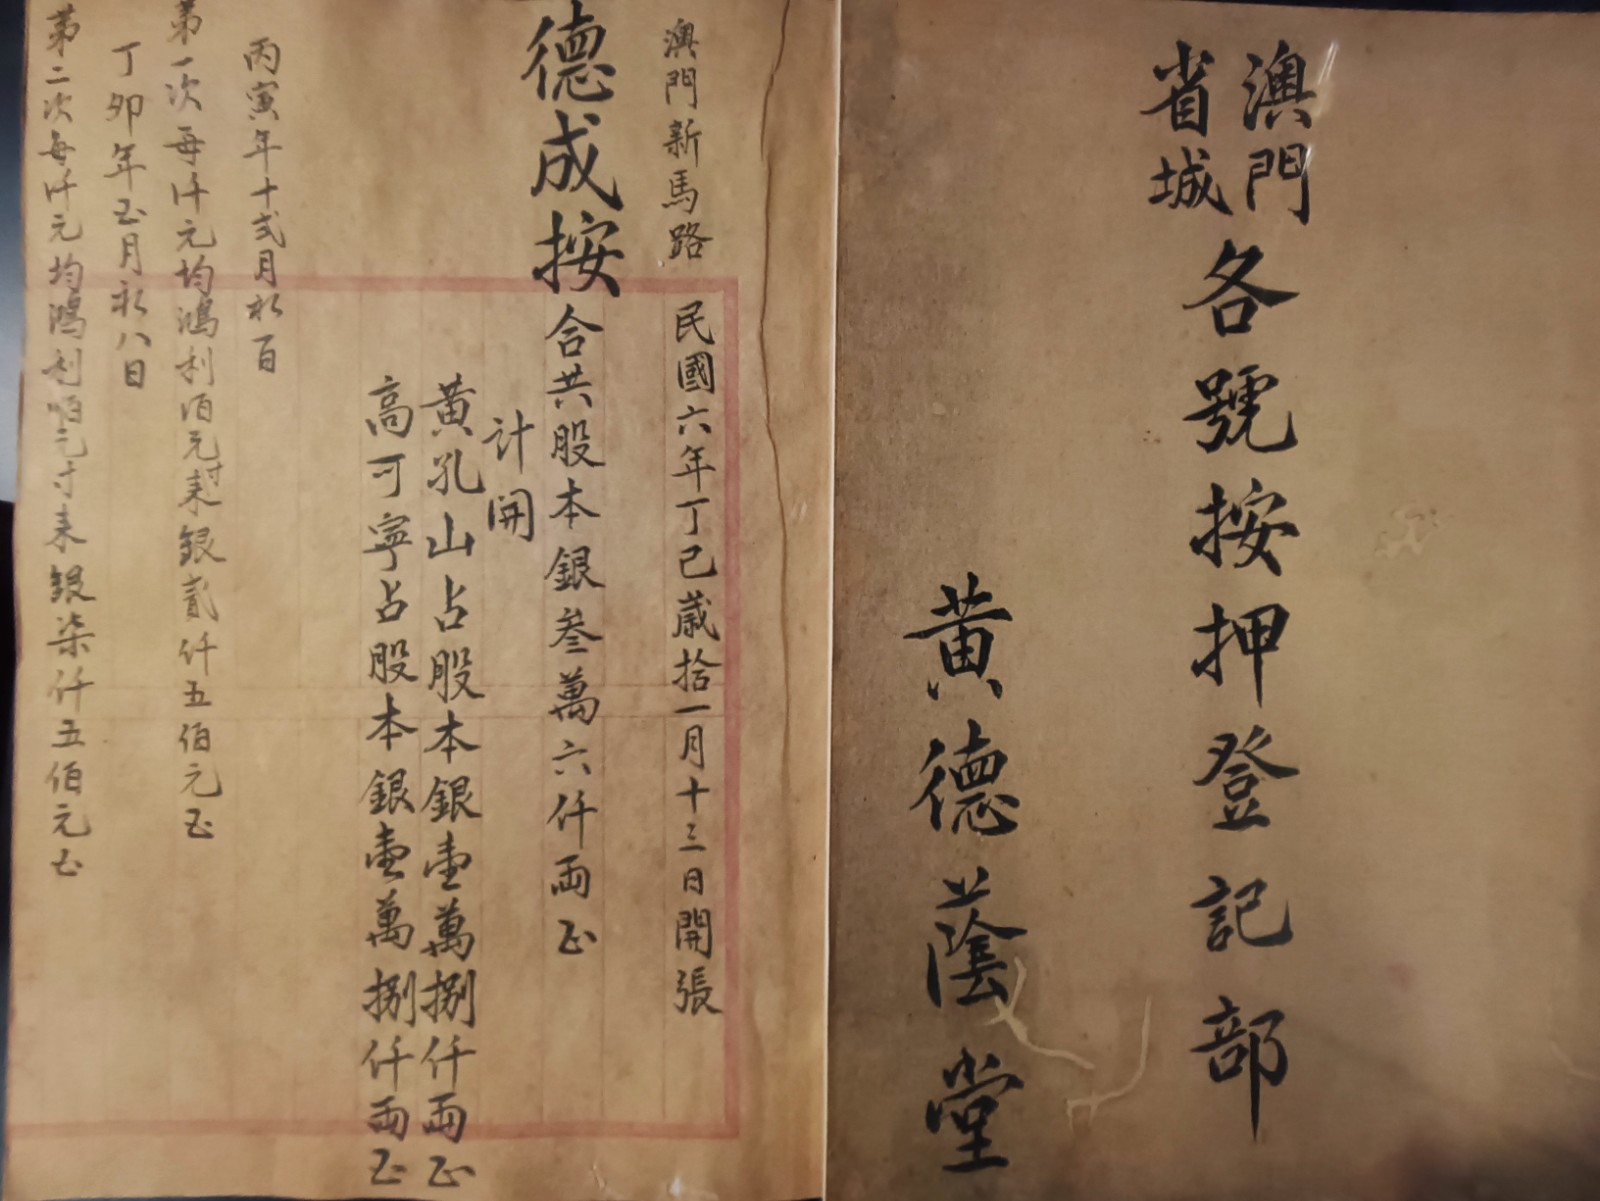 澳門
省城
各號按押登記部
黃德蔭堂
澳門新馬路
民國六年丁己歲拾一月十三日開張
德成按合共股本銀叁萬六仟両正
計開
黃孔山占股本銀壹萬捌仟両正
高可寧占股本銀壹萬捌仟両正
丙寅年十弍月初
第一次每仟元均鴻利佰元 銀貳仟五佰元正
丁卯年五月初八日
第二次每仟元均鴻利 銀柒仟五佰元正